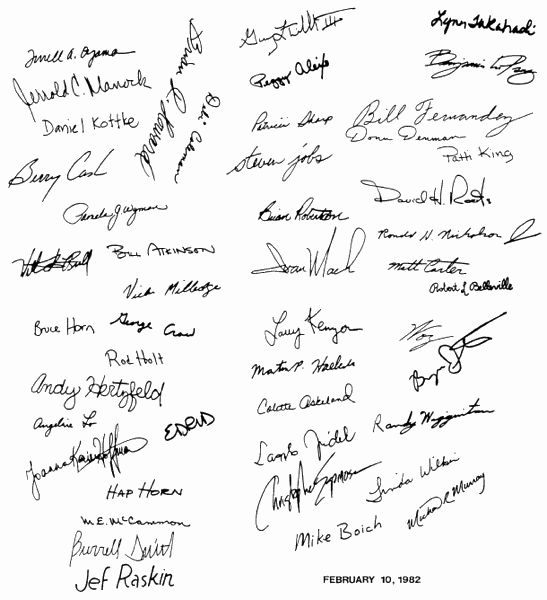 Terrell A. Oyama
Jerrold C. Manock
Daniel Kottke
Berry Cash
Brian R. Howard
Deb Coleman
Pamela G Wyman
Bill Atkinson
Vicki Milledge
Bruce Horn
George Crow
Rod Holt
Andy Hertzfeld
Angeline Lo
Joanna Karin Hoffman
Hap Horn
M.E. McCammon
Burrell Smith
Jef Raskin
Peggy Alexio
Patricia Sharp
steven jobs
Brian Robertson
Larry Kenyon
Martin P. Haeberli
Colette Askeland
Christopher Espinosa
Mike Boich
Lynn Takahashi
Benjamin
Bill Fernandez
Donn Denman
Patti King
David H. Roots
Ronald H. Nicholson
Matt Carter
Robert L Belleville
Woz
Randy Wigginton
Linda Wilkin
Michael R. Murray
FEBRUARY 10, 1982